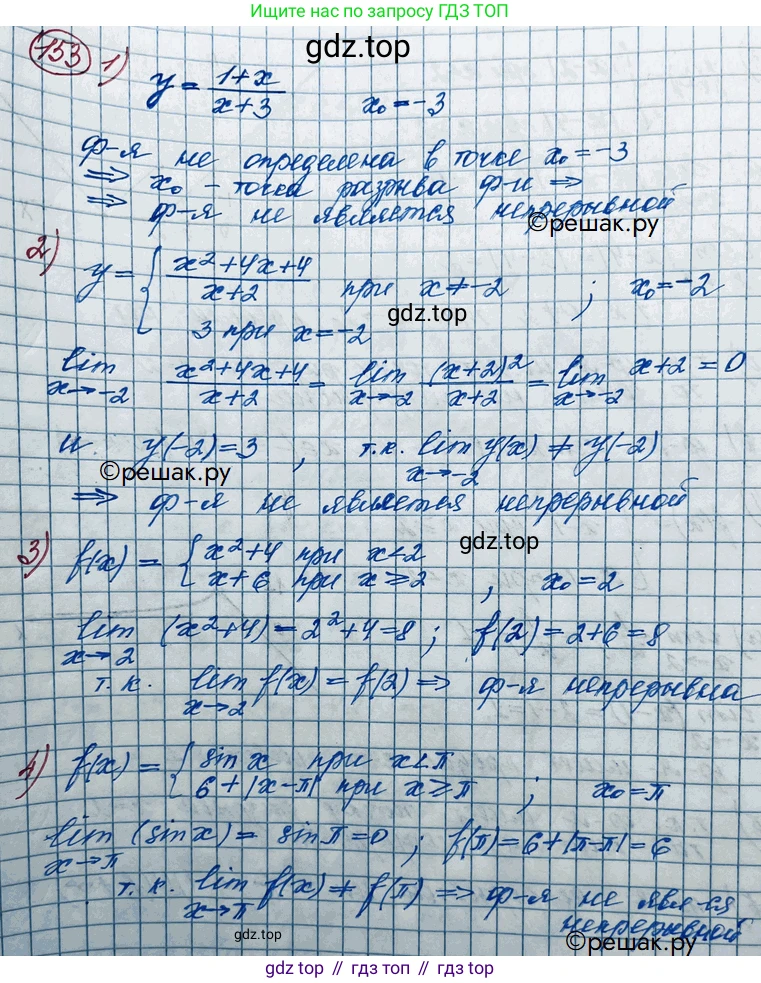 Ищите нас по запросу ГДЗ ТОП
gdz.top
153 1) y = (1+x)/(x+3) x₀ = -3
ф-я не определена в точке x₀ = -3
⇒ x₀ - точка разрыва ф-и ⇒
⇒ ф-я не является непрерывной
©решак.ру
2) y = { (x²+4x+4)/(x+2) при x ≠ -2 ; x₀ = -2
3 при x = -2
gdz.top
lim x→-2 (x²+4x+4)/(x+2) = lim x→-2 (x+2)²/(x+2) = lim x→-2 x+2 = 0
и y(-2) = 3 , т.к. lim x→-2 y(x) ≠ y(-2)
©решак.ру
⇒ ф-я не является непрерывной
gdz.top
3) f(x) = { x²+4 при x < 2
x+6 при x ⩾ 2 , x₀ = 2
lim x→2 (x²+4) = 2²+4 = 8 ; f(2) = 2+6 = 8
т.к. lim x→2 f(x) = f(2) ⇒ ф-я непрерывна
4) f(x) = { sin x при x < π
6 + |x-π| при x ⩾ π ; x₀ = π
lim x→π (sin x) = sin π = 0 ; f(π) = 6+|π-π| = 6
т.к. lim x→π f(x) ≠ f(π) ⇒ ф-я не явл-ся
непрерывной
gdz.top
©решак.ру
gdz топ // гдз топ // gdz.top